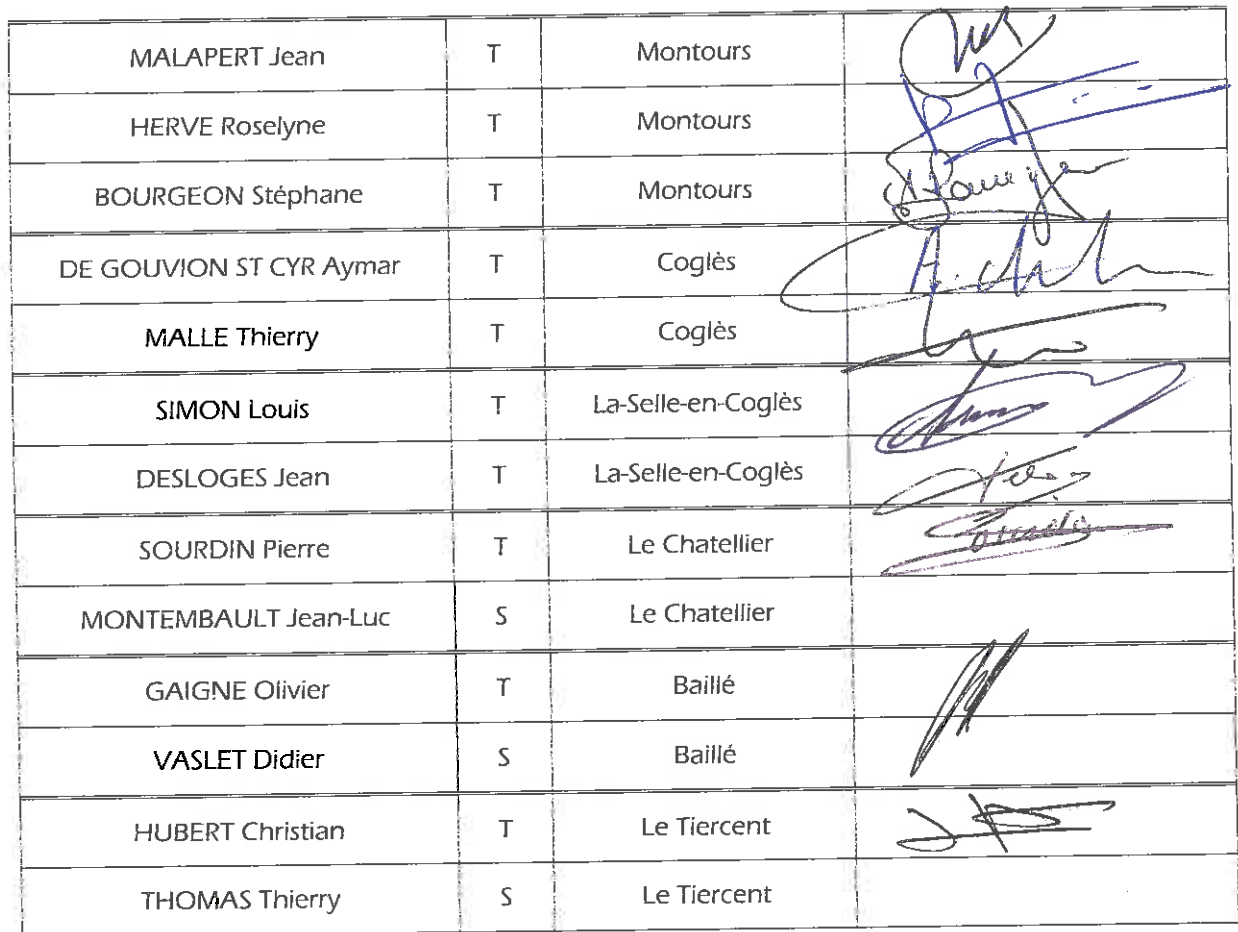 MALAPERT Jean T Montours
HERVE Roselyne T Montours
BOURGEON Stéphane T Montours
DE GOUVION ST CYR Aymar T Coglès
MALLE Thierry T Coglès
SIMON Louis T La-Selle-en-Coglès
DESLOGES Jean T La-Selle-en-Coglès
SOURDIN Pierre T Le Chatellier
MONTEMBAULT Jean-Luc S Le Chatellier
GAIGNE Olivier T Baillé
VASLET Didier S Baillé
HUBERT Christian T Le Tiercent
THOMAS Thierry S Le Tiercent